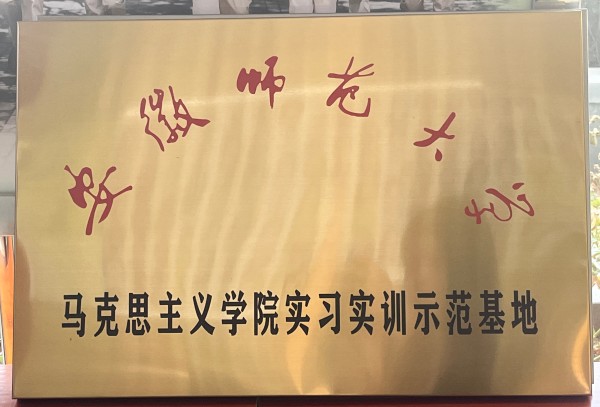 安徽师范大学
马克思主义学院实习实训示范基地